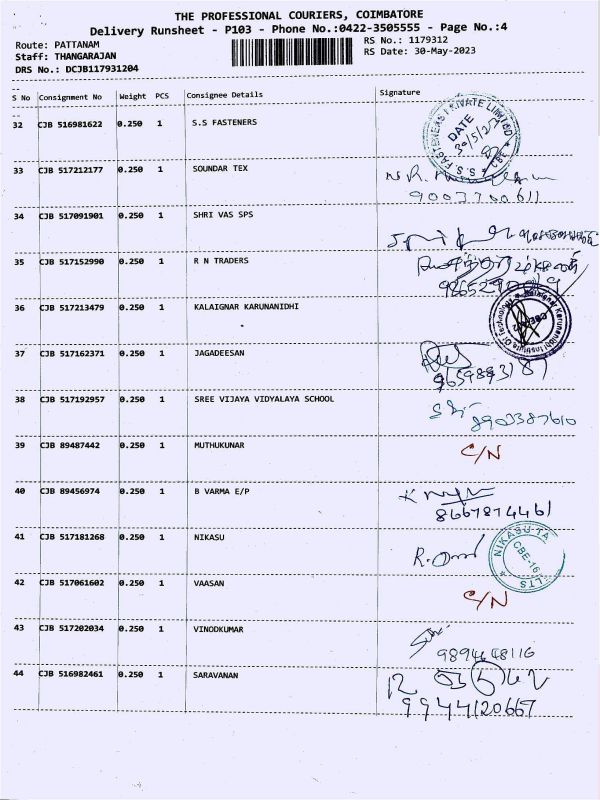 THE PROFESSIONAL COURIERS, COIMBATORE
Delivery Runsheet - P103 - Phone No.:0422-3505555 - Page No.:4
Route: PATTANAM
RS No.: 1179312
Staff: THANGARAJAN
RS Date: 30-May-2023
DRS No.: DCJB117931204
S No Consignment No Weight PCS Consignee Details Signature
32 CJB 516981622 0.250 1 S.S FASTENERS
S.S. FASTENERS PRIVATE LIMITED * CBE *
DATE
30/5/23
33 CJB 517212177 0.250 1 SOUNDAR TEX
9003700611
34 CJB 517091901 0.250 1 SHRI VAS SPS
35 CJB 517152990 0.250 1 R N TRADERS
36 CJB 517213479 0.250 1 KALAIGNAR KARUNANIDHI
Kalaignar Karunanidhi Institute Of Technology
37 CJB 517162371 0.250 1 JAGADEESAN
9659893181
38 CJB 517192957 0.250 1 SREE VIJAYA VIDYALAYA SCHOOL
8903387610
39 CJB 89487442 0.250 1 MUTHUKUNAR C/N
40 CJB 89456974 0.250 1 B VARMA E/P
8667814461
41 CJB 517181268 0.250 1 NIKASU
NIKASU
CBE-16
42 CJB 517061602 0.250 1 VAASAN C/N
43 CJB 517202034 0.250 1 VINODKUMAR
9894648116
44 CJB 516982461 0.250 1 SARAVANAN
9944120667